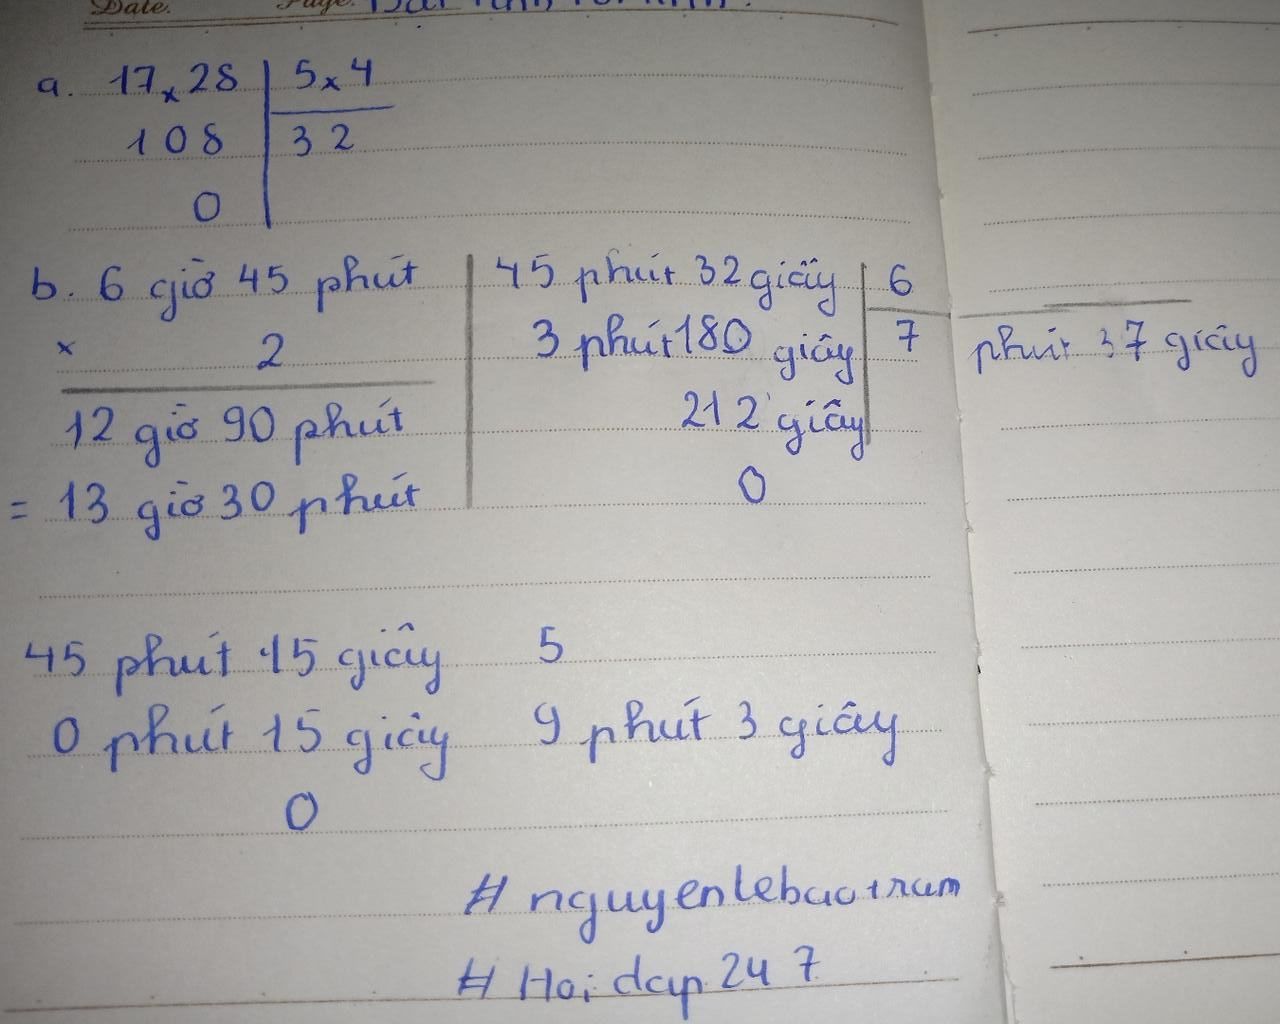 Date.
Page.
a. 17x28 5x4
108 32
0
b. 6 giờ 45 phút
x 2
12 giờ 90 phút
= 13 giờ 30 phút
45 phút 32 giây 6
3 phút 180 giây 7 phút 37 giây
212 giây
0
45 phút 15 giây 5
0 phút 15 giây 9 phút 3 giây
0
# nguyenlebaotram
# Hoi dap 247